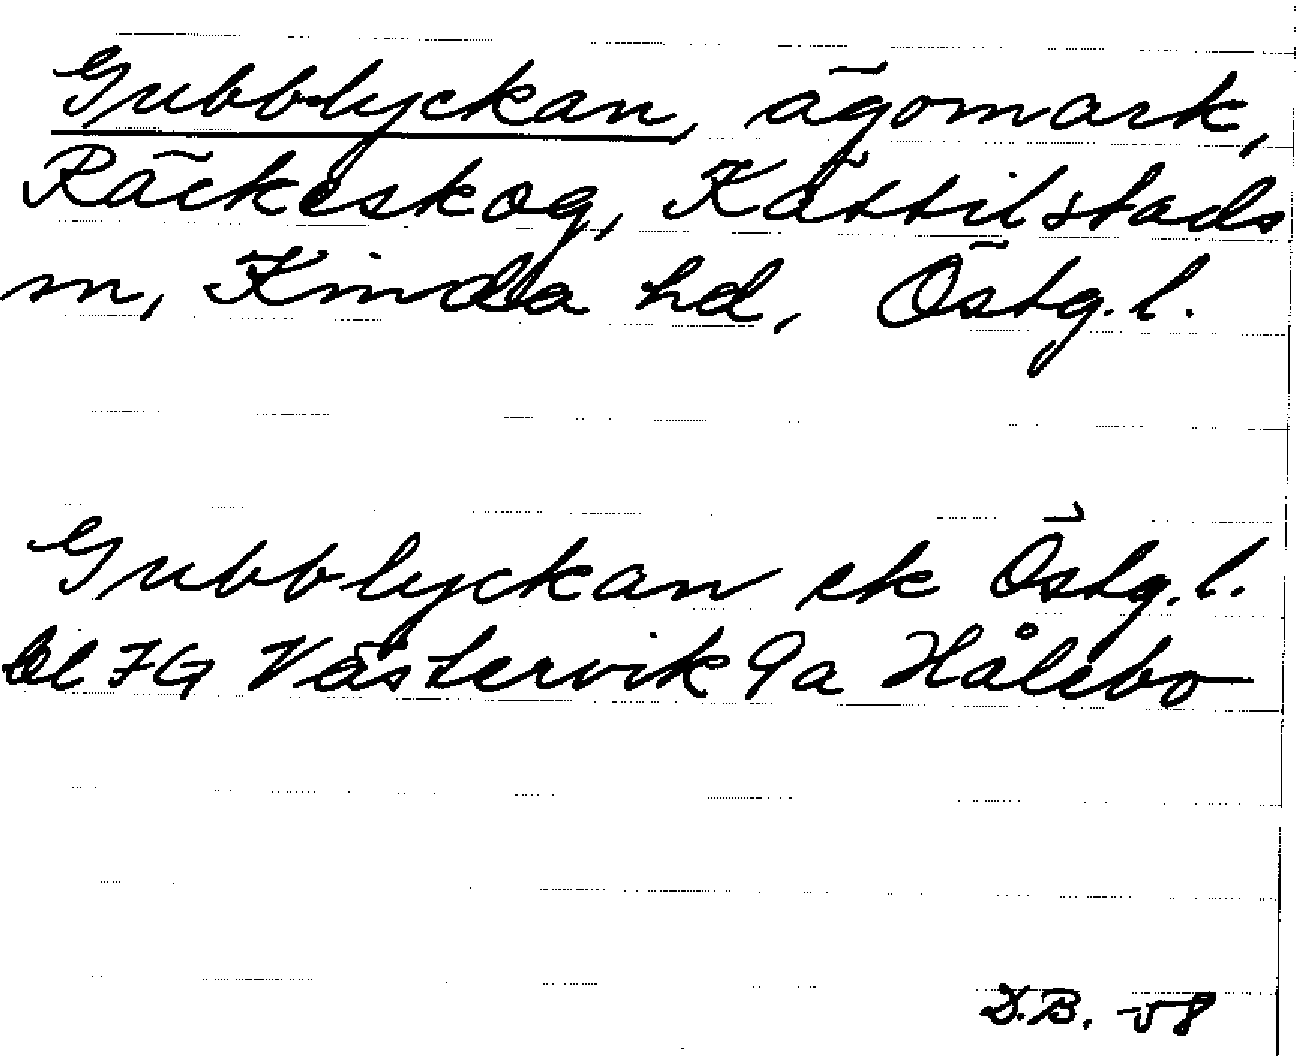 Gubblyckan, ägomark,
Räckeskog, Kättilstads
sn, Kinda hd, Östg. l.
Gubblyckan ek Östg. l.
bl 7G Västervik 9a Hålebo
D.B. -58